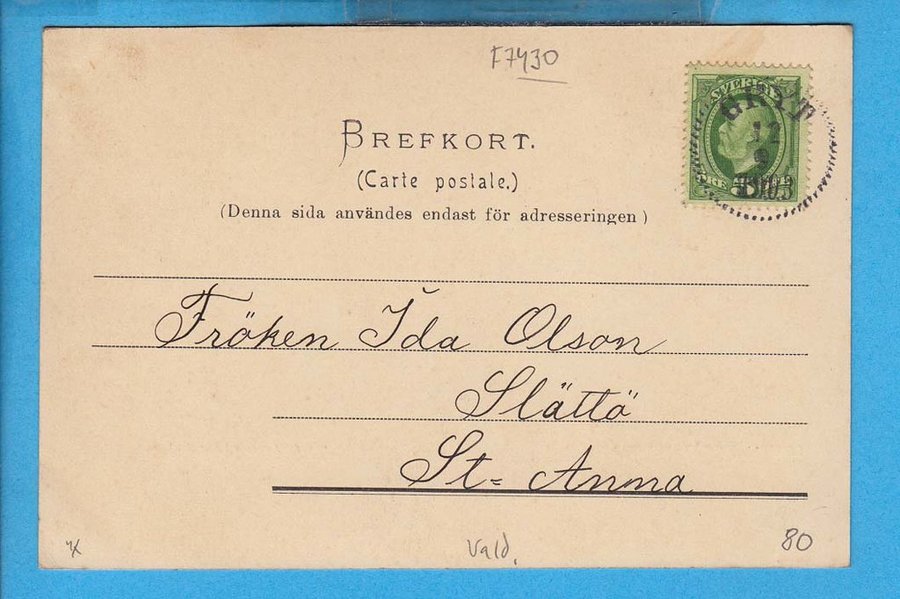 F7430
SVERIGE
GRYT
12
9
1903
BREFKORT.
(Carte postale.)
(Denna sida användes endast för adresseringen)
Fröken Ida Olson
Slättö
St= Anna
Vald,
80